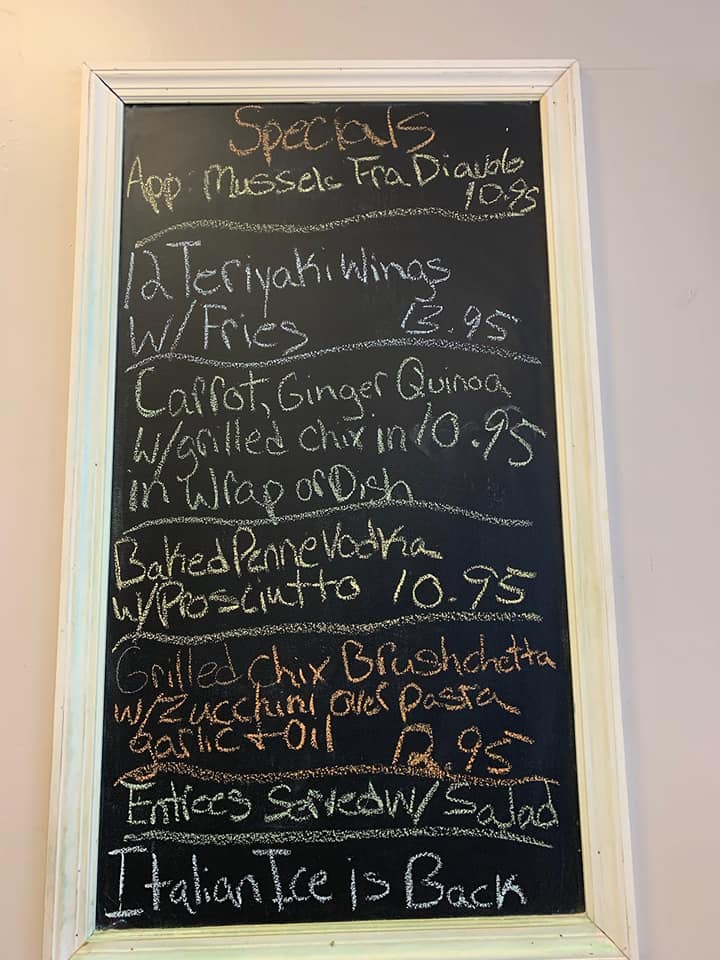 Specials
App: Mussels Fra Diavolo
10.95
12 Teriyaki Wings
W/Fries 13.95
Carrot, Ginger Quinoa
W/grilled chix in 10.95
in Wrap or Dish
Baked Penne Vodka
w/Prosciutto 10.95
Grilled Chix Brushchetta
w/Zucchini over pasta
garlic + Oil 12.95
Entrees Served W/ Salad
Italian Ice is Back